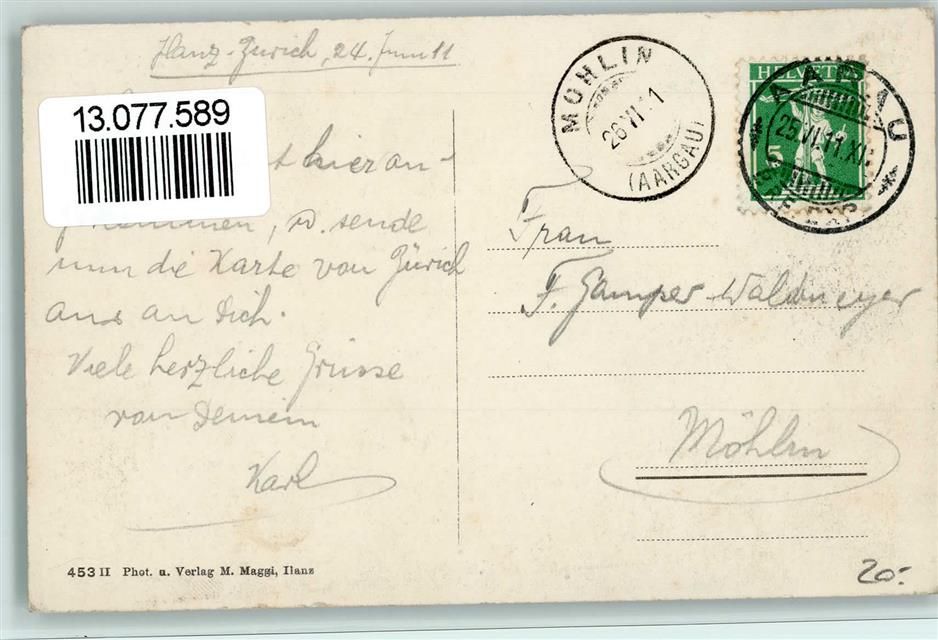 Ilanz-Zürich, 24. Juni 11
13.077.589
hier an-
, sende
nun die Karte von Zürich
aus an Dich.
Viele herzliche Grüsse
von Deinem
Karl
453 II Phot. u. Verlag M. Maggi, Ilanz
MÖHLIN
26 VI 11
(AARGAU)
HELVETIA
5
AARAU
25.VI.11.XI
Frau
F. Gamper-Waldmeyer
Möhlin
20.-